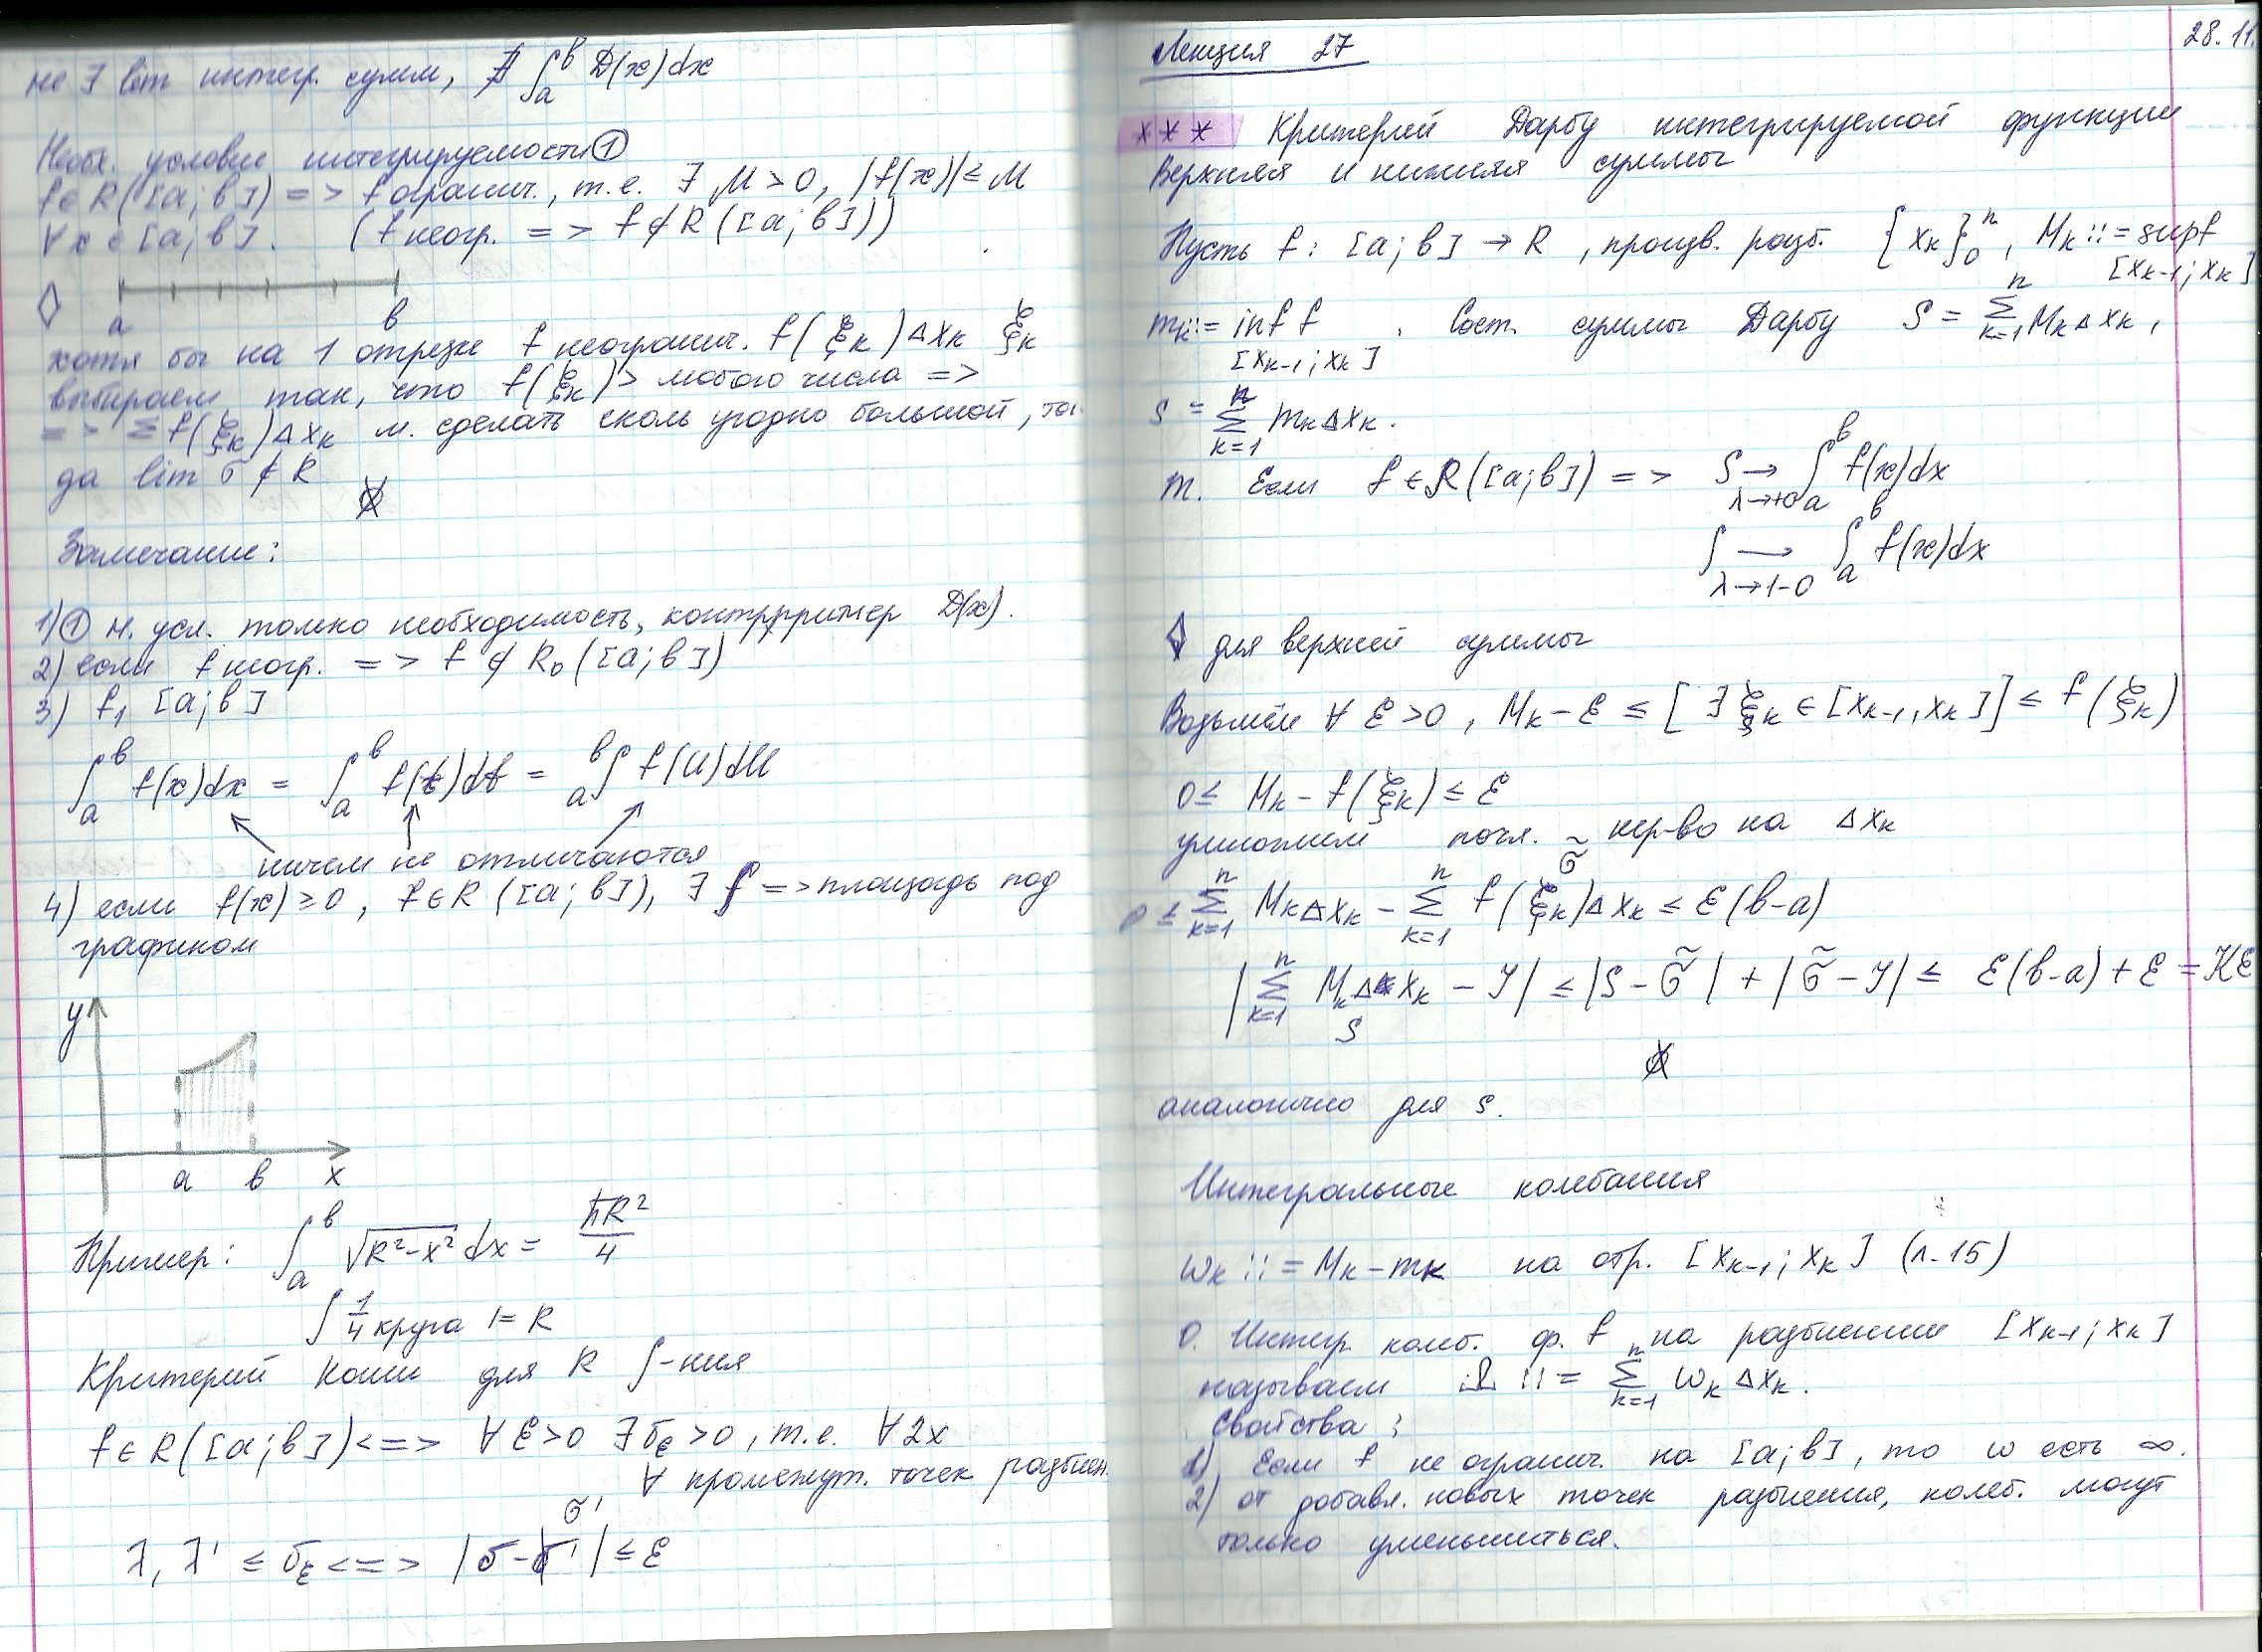 не ∃ lim интегр. сумм, ∄ ∫_a^b D(x)dx
Необх. условие интегрируемости ①
f∈R([a;b]) => f огранич., т.е. ∃ M>0, |f(x)|≤M
∀x∈[a;b]. (f неогр. => f∉R([a;b]))
a b
хотя бы на 1 отрезке f неогранич. f(ξk)Δxk ξk
выбираем так, что f(ξk)> любого числа =>
=> Σf(ξk)Δxk м. сделать сколь угодно большой, тог
да lim σ ∉ R
Замечание:
1) ① н. усл. только необходимость, контрпример D(x).
2) если f неогр. => f ∉ R₀([a;b])
3) f, [a;b]
∫_a^b f(x)dx = ∫_a^b f(t)dt = ∫_a^b f(u)du
ничем не отличаются
4) если f(x)≥0, f∈R([a;b]), ∃ ∫ => площадь под
графиком
y
a b x
Пример: ∫_a^b √(R²-x²) dx = πR²/4
∫ 1/4 круга r=R
Критерий Коши для R ∫-ния
f∈R([a;b]) <=> ∀ε>0 ∃δε>0, т.е. ∀2х
∀ промежут. точек разбиен
σ'
λ, λ' ≤ δε <=> |σ-σ'| ≤ ε
Лекция 27 28.11.
*** Критерий Дарбу интегрируемой функции
Верхняя и нижняя суммы
Пусть f: [a;b] → R, произв. разб. {xk}₀ⁿ, Mk ::= sup f
[xk-1; xk]
mk ::= inf f . Сост. суммы Дарбу S = Σ_{k=1}^n MkΔxk,
[xk-1; xk]
s = Σ_{k=1}^n mkΔxk.
т. Если f∈R([a;b]) => S → ∫_a^b f(x)dx
λ→+0
∫ → ∫_a^b f(x)dx
λ→1-0
для верхней суммы
Возьмём ∀ε>0, Mk-ε ≤ [∃ξk∈[xk-1, xk]] ≤ f(ξk)
0≤ Mk-f(ξk) ≤ ε
умножим посл. нер-во на Δxk
σ̃
0 ≤ Σ_{k=1}^n MkΔxk - Σ_{k=1}^n f(ξk)Δxk ≤ ε(b-a)
|Σ_{k=1}^n MkΔxk - I| ≤ |S-σ̃| + |σ̃-I| ≤ ε(b-a)+ε = Kε
S
аналогично для s.
Интегральные колебания
ωk ::= Mk-mk на отр. [xk-1; xk] (л-15)
О. Интегр. колеб. ф. f на разбиении [xk-1; xk]
называем Ω ::= Σ_{k=1}^n ωkΔxk.
Свойства:
1) Если f не огранич. на [a;b], то ω есть ∞.
2) от добавл. новых точек разбиения, колеб. могут
только уменьшиться.